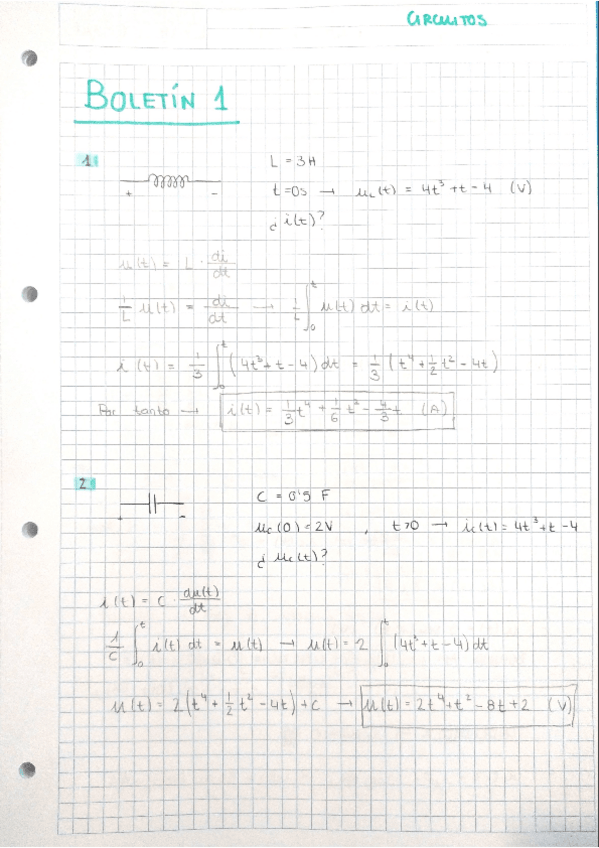 CIRCUITOS
BOLETÍN 1
1
L = 3H
t = 0s → u_L(t) = 4t³ + t - 4 (V)
¿ i(t)?
+ -
u(t) = L · di/dt
1/L u(t) = di/dt → 1/L ∫₀ᵗ u(t) dt = i(t)
i(t) = 1/3 ∫₀ᵗ (4t³ + t - 4) dt = 1/3 (t⁴ + 1/2 t² - 4t)
Por tanto → i(t) = 1/3 t⁴ + 1/6 t² - 4/3 t (A)
2
C = 0'5 F
+ -
u_C(0) = 2V , t>0 → i_C(t) = 4t³ + t - 4
¿ u_C(t)?
i(t) = C · du(t)/dt
1/C ∫₀ᵗ i(t) dt = u(t) → u(t) = 2 ∫₀ᵗ (4t³ + t - 4) dt
u(t) = 2(t⁴ + 1/2 t² - 4t) + C → u(t) = 2t⁴ + t² - 8t + 2 (V)